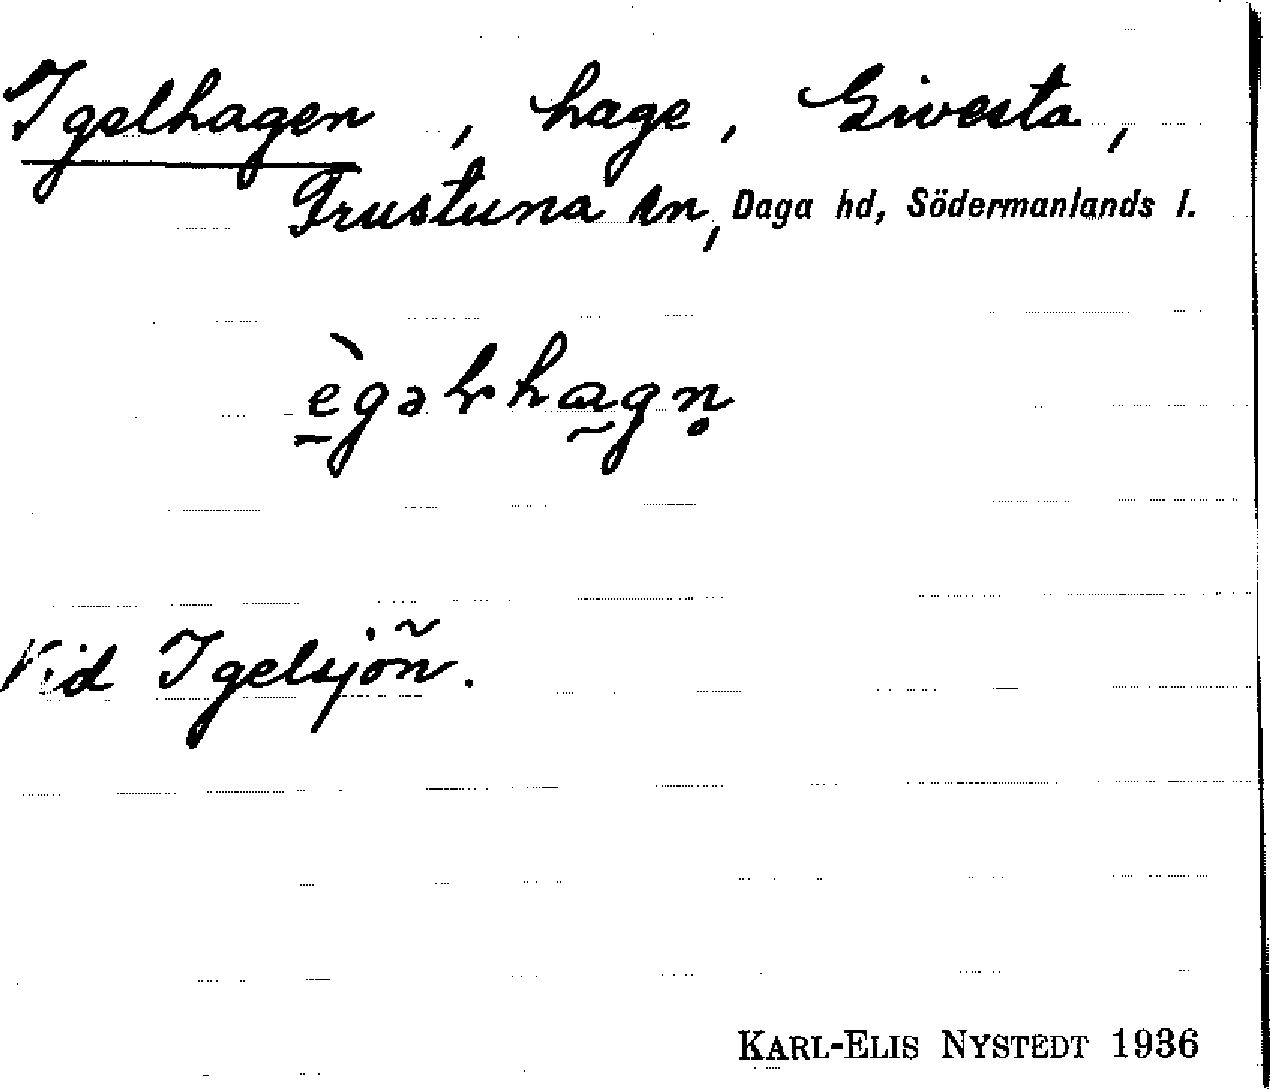 Igelhagen, hage, Sivesta,
Frustuna sn, Daga hd, Södermanlands l.
Vid Igelsjön.
KARL-ELIS NYSTEDT 1936